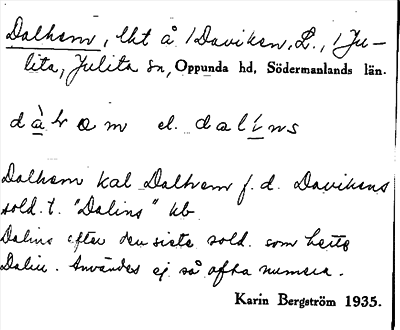 Dalhem, lht å /Daviken, L., /Ju-
lita, Julita sn, Oppunda hd, Södermanlands län.
dàhem el. dalíns
Dalhem kal Dalhem f. d. Davikens
sold. t. "Dalins" kb
Dalins efter den siste sold. som hette
Dalin. Användes ej så ofta numera.
Karin Bergström 1935.